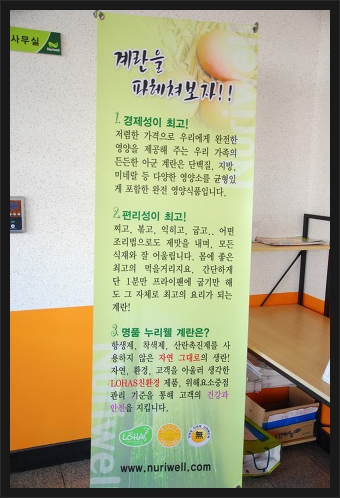 사무실
Nuriwell
계란을
파헤쳐보자!!
1. 경제성이 최고!
저렴한 가격으로 우리에게 완전한
영양을 제공해 주는 우리 가족의
든든한 아군 계란은 단백질, 지방,
미네랄 등 다양한 영양소를 균형있
게 포함한 완전 영양식품입니다.
2. 편리성이 최고!
찌고, 볶고, 익히고, 굽고.. 어떤
조리법으로도 제맛을 내며, 모든
식재와 잘 어울립니다. 몸에 좋은
최고의 먹을거리지요. 간단하게
단 1분만 프라이팬에 굽기만 해
도 그 자체로 최고의 요리가 되는
계란!
3. 명품 누리웰 계란은?
항생제, 착색제, 산란촉진제를 사
용하지 않은 자연 그대로의 생란!
자연, 환경, 고객을 아울러 생각한
LOHAS친환경 제품, 위해요소중점
관리 기준을 통해 고객의 건강과
안전을 지킵니다.
LOHAS
無
www.nuriwell.com